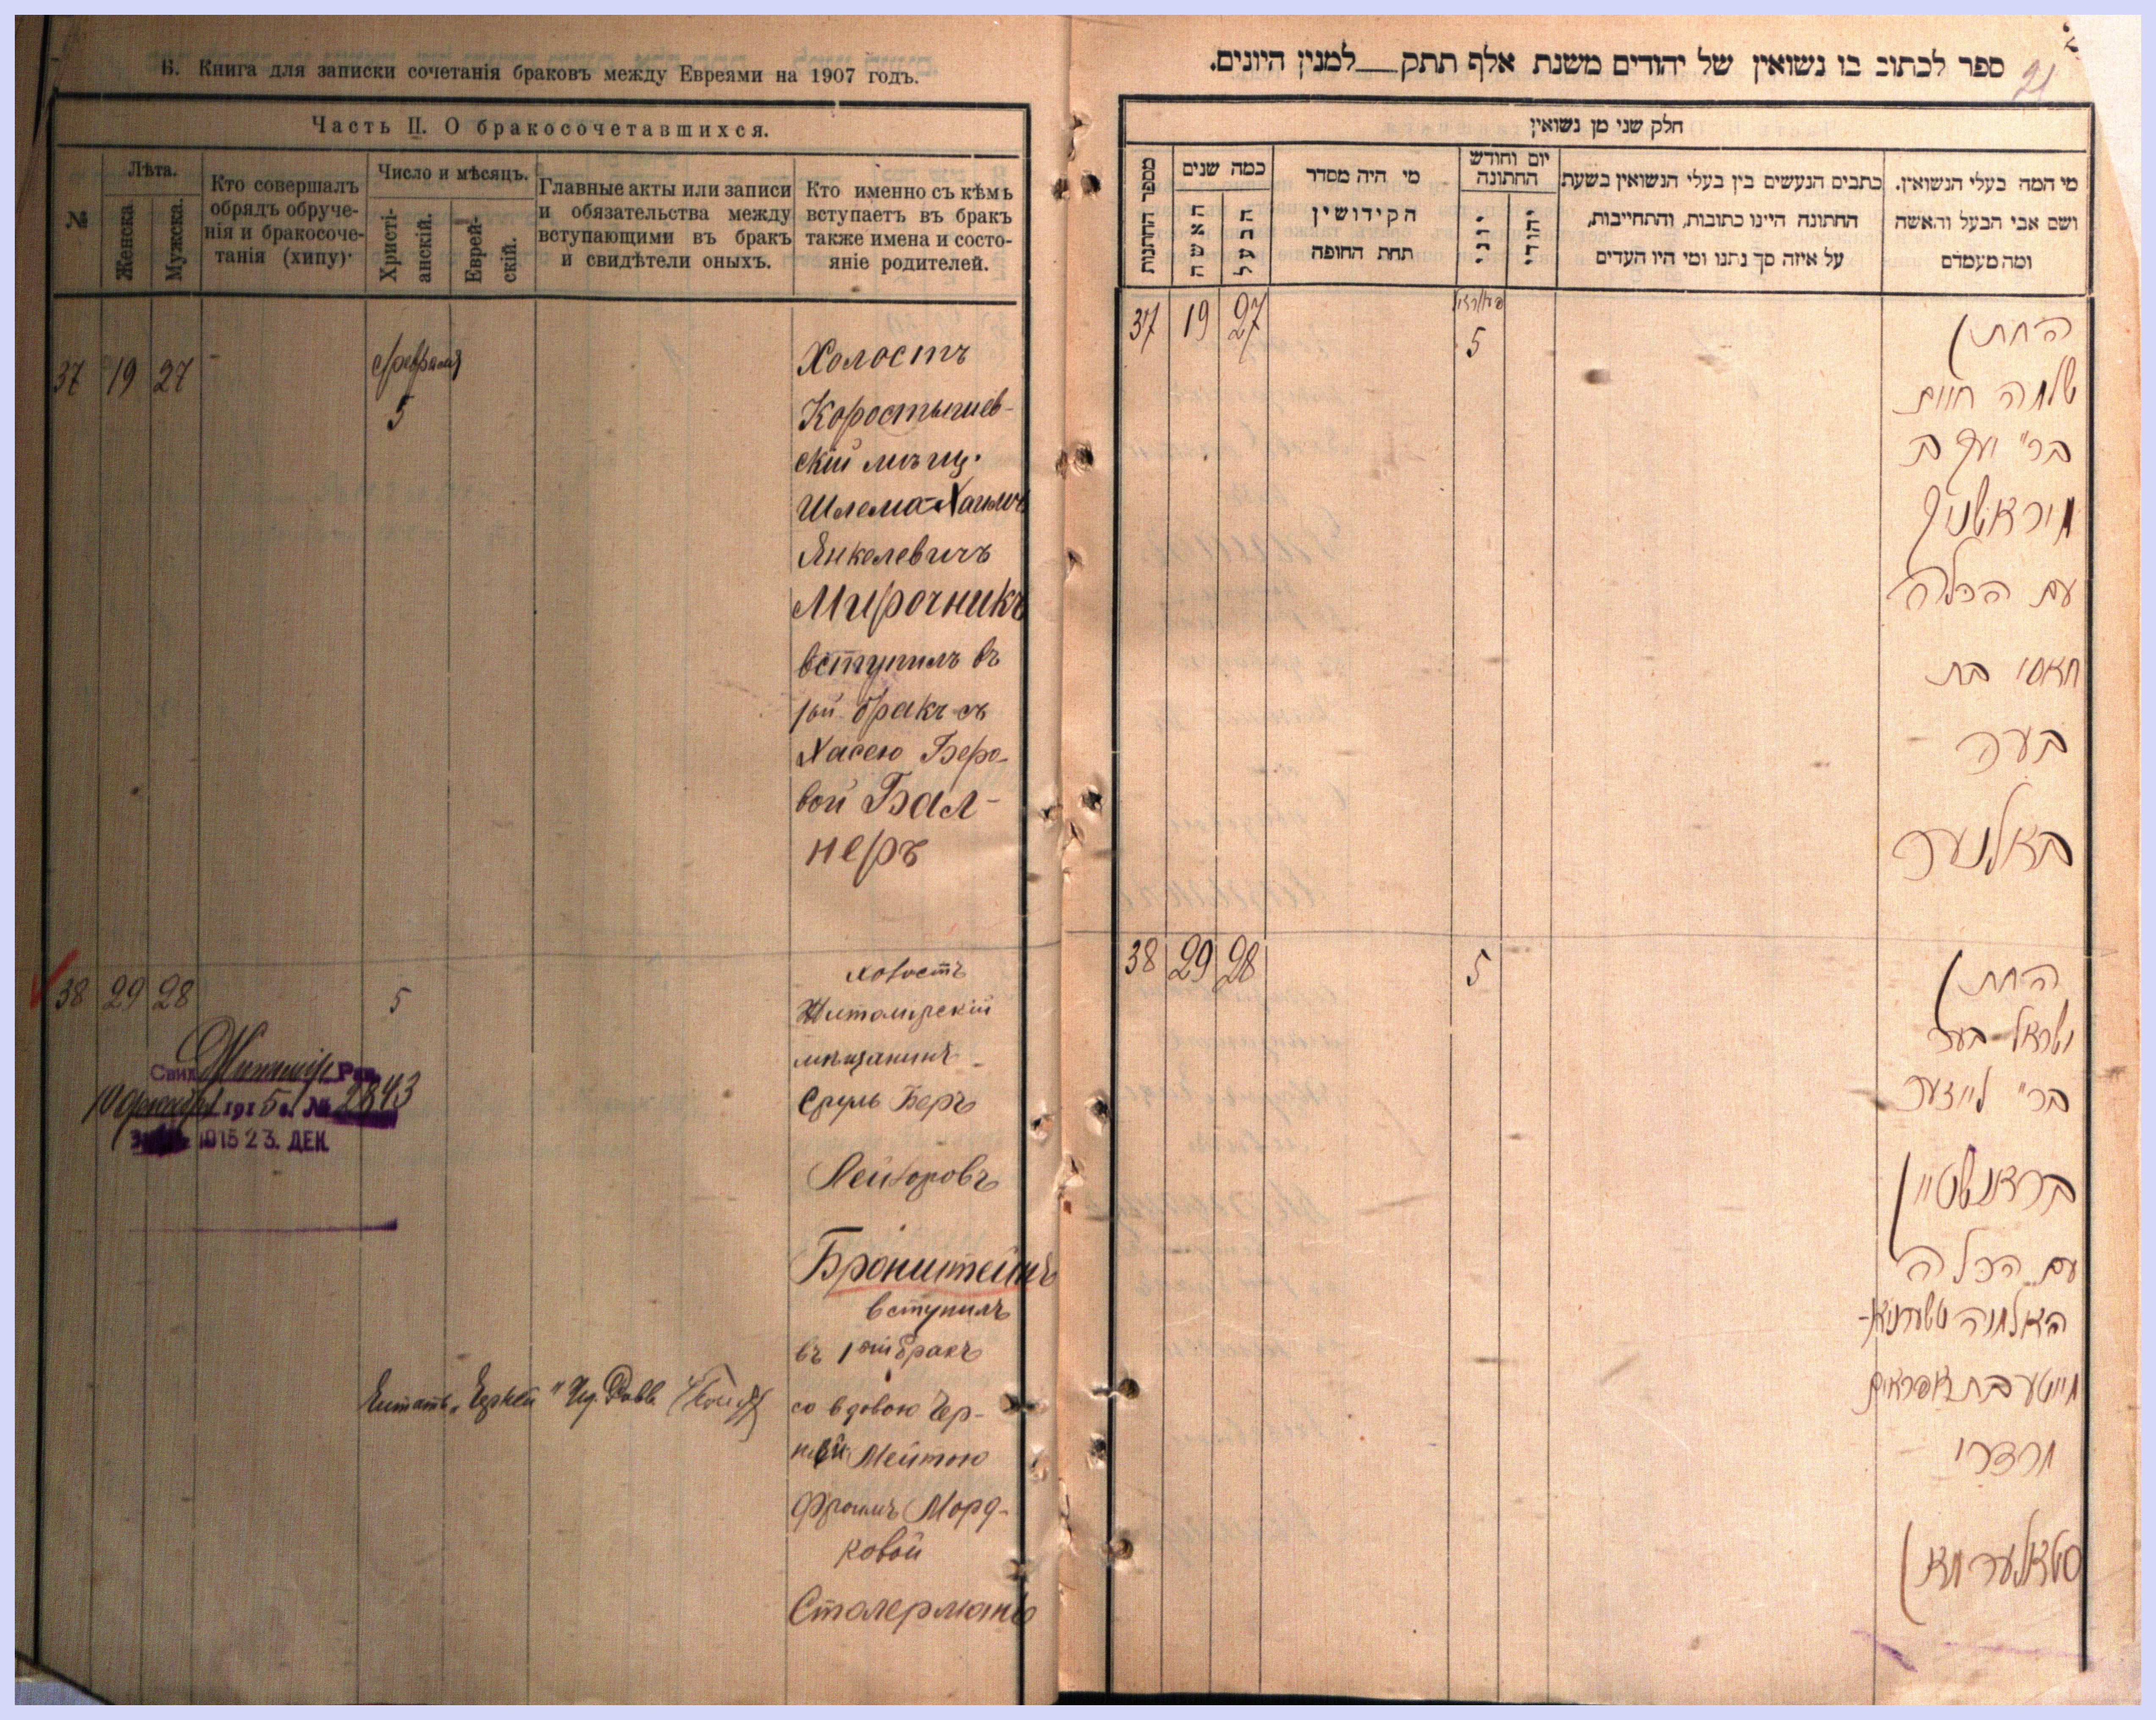 Б. Книга для записки сочетанія браковъ между Евреями на 1907 годъ.
Часть II. О бракосочетавшихся.
№
Лѣта.
Женска.
Мужска.
Кто совершалъ
обрядъ обруче-
нія и бракосоче-
танія (хипу)
Число и мѣсяцъ.
Христі-
анскій.
Еврей-
скій.
Главные акты или записи
и обязательства между
вступающими въ бракъ
и свидѣтели оныхъ.
Кто именно съ кѣмъ
вступаетъ въ бракъ
также имена и состо-
яніе родителей.
37 19 27
февраля
5
Холостъ
Коростышев-
скій мѣщ.
Шлема-Хаимъ
Янкелевичъ
Мирочникъ
вступилъ въ
1ый бракъ съ
Хасею Беро-
вой Бал-
неръ
38 29 28 5
Холостъ
Житомирскій
мѣщанинъ
Сруль Беръ
Лейзоровъ
Бронштейнъ
вступилъ
въ 1ый бракъ
со вдовою Чер-
ней Мейтою
Фроимъ Морд-
ковой
Столерманъ
Свид. Житомір. Рав.
1915 г. № 2843
1915 23. ДЕК.
Читать „Черней“
ספר לכתוב בו נשואין של יהודים משנת אלף תתק למנין היונים.
21
חלק שני מן נשואין
מספר החתונות
כמה שנים
האשה
הבעל
מי היה מסדר
הקידושין
תחת החופה
יום וחודש
החתונה
יוני
יהודי
כתבים הנעשים בין בעלי הנשואין בשעת
החתונה היינו כתובות, והתחייבות,
על איזה סך נתנו ומי היו העדים
מי המה בעלי הנשואין.
ושם אבי הבעל והאשה
ומה מעמדם
37 19 27
5
החתן
שלמה חיים
בר' יעקב
מיראטשניק
עם הכלה
חאסי בת
בער
באלנער
38 29 28 5
החתן
ישראל בער
בר' לייזער
בראנשטיין
עם הכלה
האלמנה טשערניא-
מייטע בת אפראים
מרדכי
סטאלערמאן